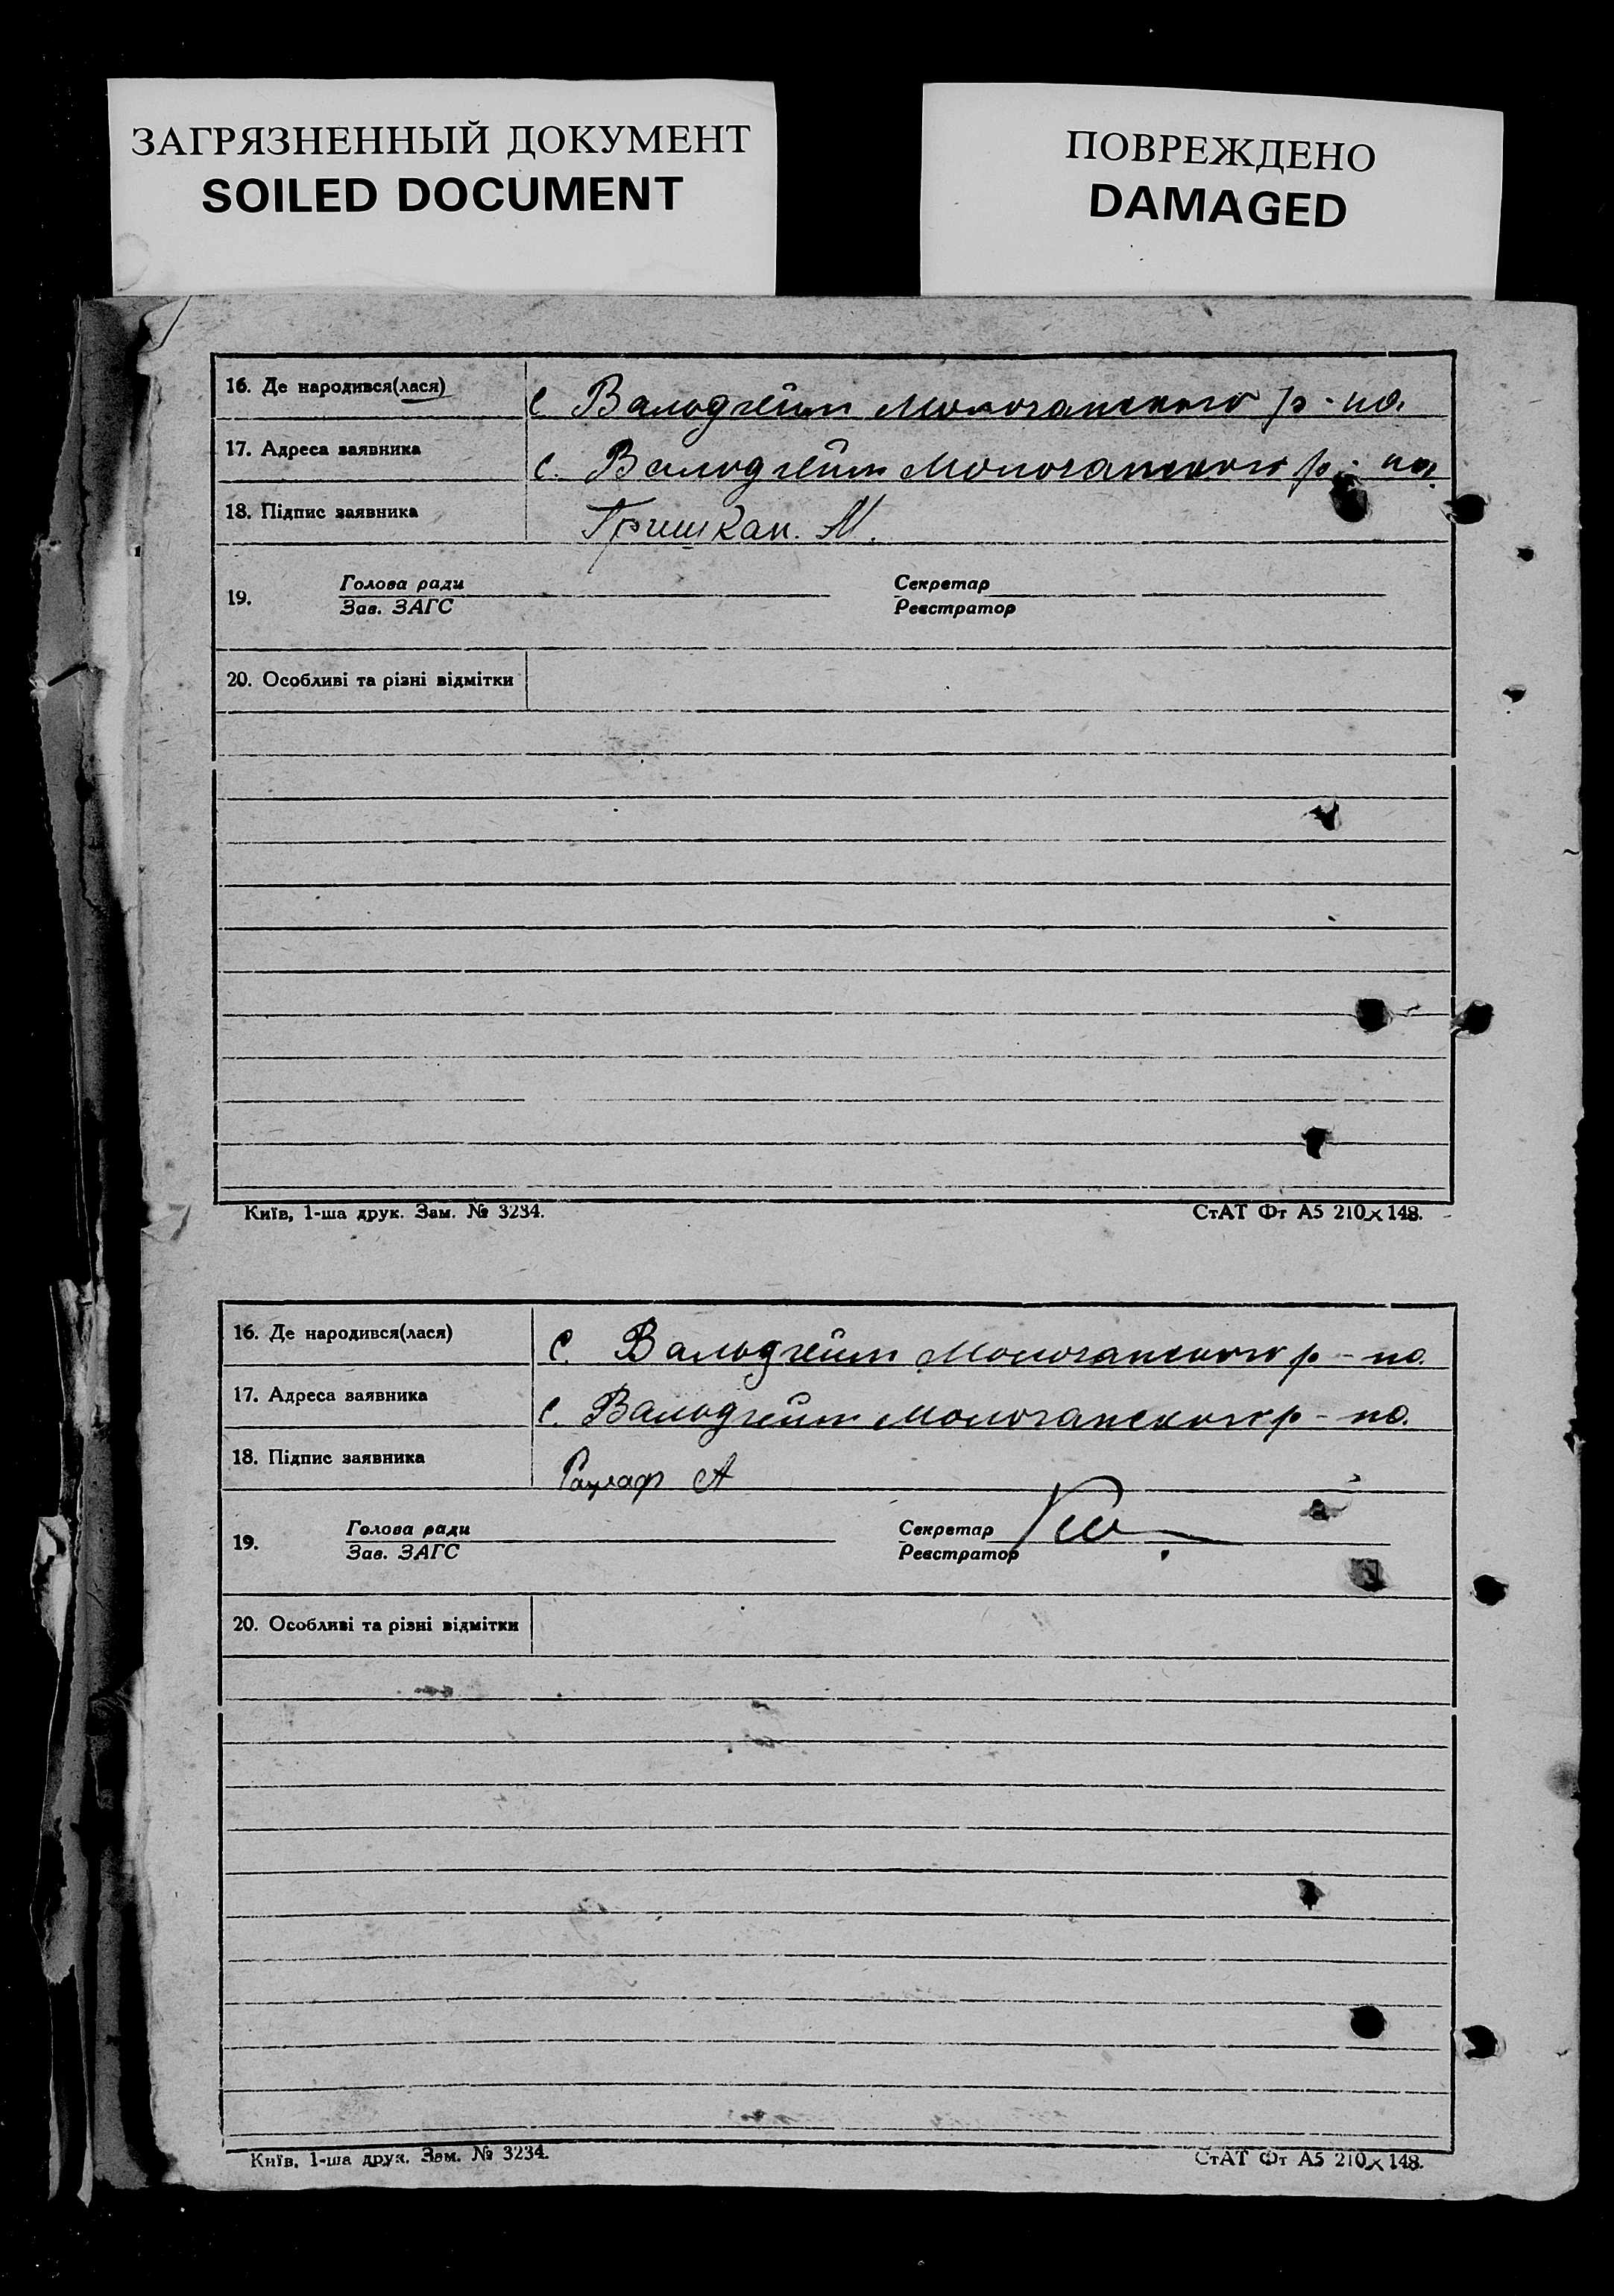 ЗАГРЯЗНЕННЫЙ ДОКУМЕНТ
SOILED DOCUMENT
ПОВРЕЖДЕНО
DAMAGED
16. Де народився(лася) с Вальдгейм Молочанского р-на
17. Адреса заявника с. Вальдгейм Молочанского р-на.
18. Підпис заявника Гришкан. М.
19. Голова ради Секретар
Зав. ЗАГС Реєстратор
20. Особливі та різні відмітки
Київ, 1-ша друк. Зам. № 3234. СтАТ Фт А5 210×148.
16. Де народився(лася) с. Вальдгейм Молочанского р-на
17. Адреса заявника с. Вальдгейм Молочанского р-на.
18. Підпис заявника А
19. Голова ради Секретар
Зав. ЗАГС Реєстратор
20. Особливі та різні відмітки
Київ, 1-ша друк. Зам. № 3234. СтАТ Фт А5 210×148.